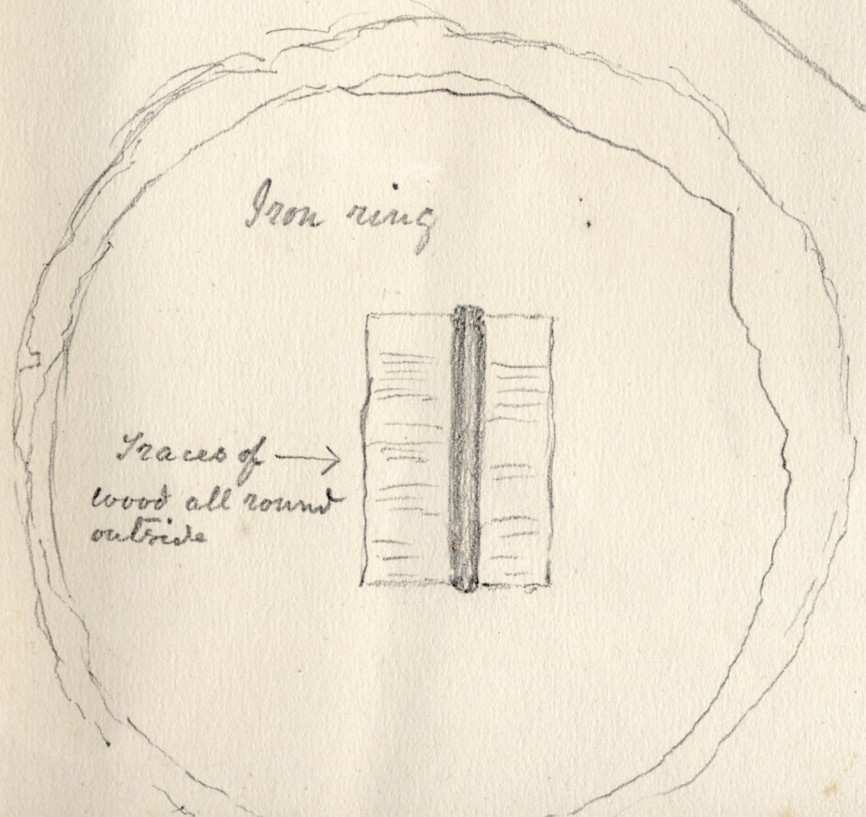 Iron ring
Traces of
wood all round
outside